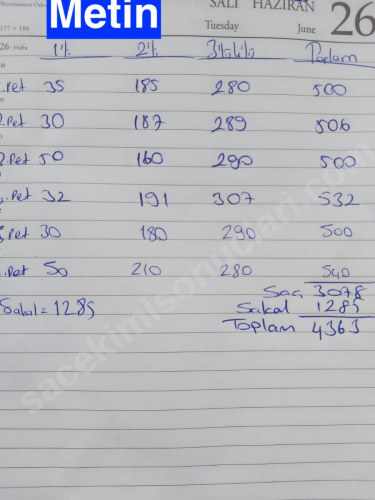 Metin
SALI HAZİRAN
Tuesday June 26
177 + 188
26. Hafta
1'li 2'li 3'lü Toplam
.Pet 35 185 280 500
.Pet 30 187 289 506
.Pet 50 160 290 500
.Pet 32 191 307 532
.Pet 30 180 290 500
.Pet 50 210 280 540
Saç 3078
Sakal = 1285 Sakal 1285
Toplam 4363
sacekimisonuclari.com